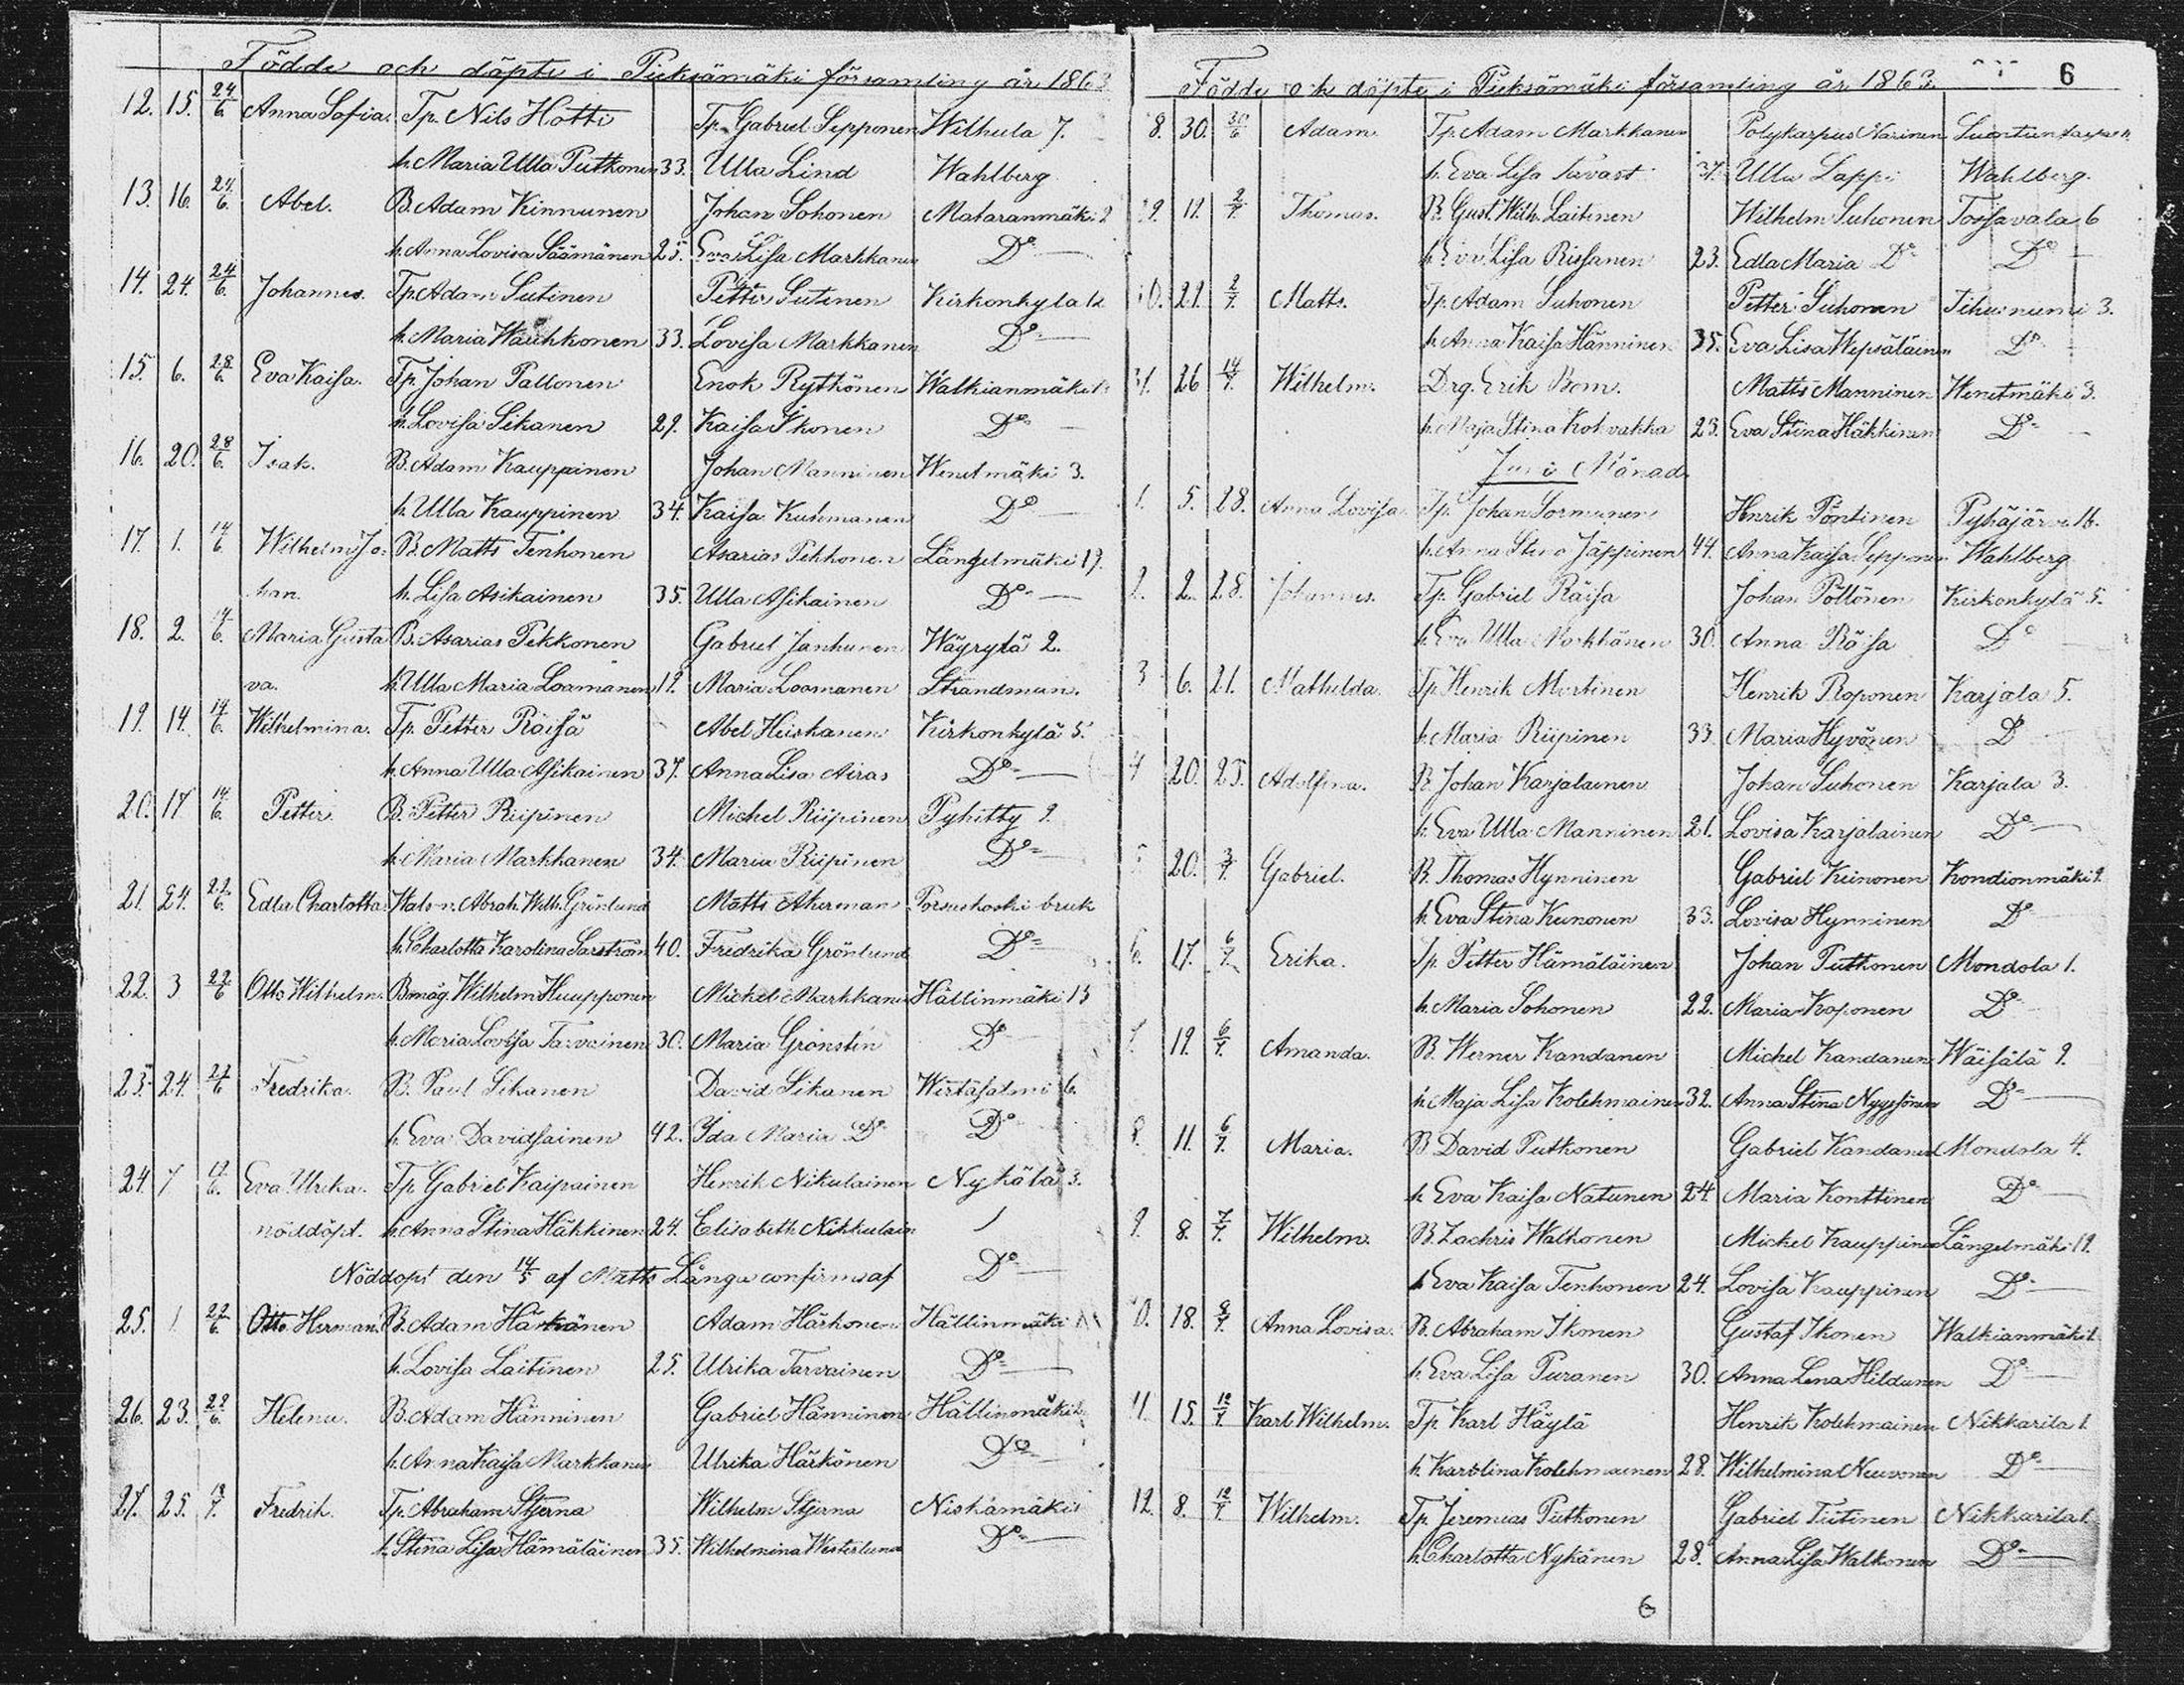 Födde och döpte i Pieksämäki församling år 1863
12. 15. 24/6 Anna Sofia. Tp. Nils Hotti Tp. Gabriel Sepponen Wilhula 7.
h. Maria Ulla Putkonen 33. Ulla Lind Wahlberg
13. 16. 24/6 Abel. B. Adam Kinnunen Johan Sohonen Mataranmäki 2
h. Anna Lovisa Säämänen 25. Eva Lisa Markkanen Do
14. 24. 24/6 Johannes. Tp. Adam Sutinen Petter Sutinen Kirkonkylä 12
h. Maria Wauhkonen 33. Lovisa Markkanen Do
15. 6. 28/6 Eva Kaisa. Tp. Johan Pallonen Enok Rytkönen Walkianmäki
h. Lovisa Sikanen 29. Kaisa Ikonen Do
16. 20. 28/6 Isak. B. Adam Kauppinen Johan Manninen Wenetmäki 3.
h. Ulla Kauppinen 34. Kaisa Kuhmanen Do
17. 1. 14/6 Wilhelm Jo- B. Matts Tenhonen Asarias Pekkonen Längelmäki 19.
han. h. Lisa Asikainen 35. Ulla Asikainen Do
18. 2. 14/6 Maria Gusta B. Asarias Pekkonen Gabriel Janhunen Wäyrylä 2.
va. h. Ulla Maria Loamanen 19. Maria Loamanen Strandman.
19. 14. 14/6 Wilhelmina. Tp. Petter Räisä Abel Hiiskanen Kirkonkylä 5.
h. Anna Ulla Asikainen 37. Anna Lisa Airas Do
20. 17 14/6 Petter. B. Petter Riipinen Michel Riipinen Pyhitty 9.
h. Maria Markkanen 34. Maria Riipinen Do
21. 24. 22/6 Edla Charlotta. Abrah. Wilh. Grönlund Matts Akerman Porsaskoski bruk
h. Charlotta Karolina Sarström 40. Fredrika Grönlund Do
22. 3 22/6 Otto Wilhelm. Bmåg. Wilhelm Huupponen Mickel Markkanen Hällinmäki 13
h. Maria Lovisa Tarvainen 30. Maria Grönstin Do
23. 24. 22/6 Fredrika. B. Paul Sikanen David Sikanen Wirtäsalmi 6.
h. Eva Davidsainen 42. Ida Maria Do Do
24. 7 19/6 Eva Ulrika. Tp. Gabriel Kaipainen Henrik Nikulainen Nykälä 3.
nöddöpt. h. Anna Stina Häkkinen 24. Elisabeth Nikkulain
Nöddöpt den 14/5 af Matts Långa confirm af Do
25. 1 22/6 Otto Herman. B. Adam Härkönen Adam Härkonen Hällinmäki
h. Lovisa Laitinen 25. Ulrika Tarvainen Do
26. 23. 22/6 Helena. B. Adam Hänninen Gabriel Hänninen Hällinmäki
h. Anna Kaisa Markkanen Ulrika Härkönen Do
27. 25. Fredrik. Tp. Abraham Stjerna Wilhelm Stjerna Niskamäki
h. Stina Lisa Hämäläinen 35. Wilhelmina Westerlund Do
6
Födde och döpte i Pieksämäki församling år 1863.
8. 30. 30/6 Adam. Tp. Adam Markkanen Polykarpus Narinen
h. Eva Lisa Savast 37. Ulla Lappi Wahlberg.
29. 19. 2/7 Thomas. B. Gust. Wilh. Laitinen Wilhelm Suhonen Tossavala 6
h. Eva Lisa Rissanen 23. Edla Maria Do Do
30. 29. 2/7 Matts. Tp. Adam Suhonen Petter Suhonen Tihusniemi 3.
h. Anna Kaisa Hänninen 35. Eva Lisa Wepsäläinen Do
31. 26 14/7 Wilhelm. Drg. Erik Bom. Matts Manninen Wenetmäki 3.
h. Maja Stina Kohvakka 23. Eva Stina Häkkinen Do
Juni Månad.
1. 5. 28. Anna Lovisa. Tp. Johan Sormunen Henrik Pöntinen Pyhäjärvi 16.
h. Anna Stina Jäppinen 44. Anna Kaisa Sepponen Wahlberg
2. 2. 28. Johannes. Tp. Gabriel Räisa Johan Pöllönen Kirkonkylä 5.
h. Eva Ulla Markkanen 30. Anna Räisa Do
3 6. 21. Mathilda. Tp. Henrik Mertinen Henrik Roponen Karjala 5.
h. Maria Riipinen 33. Maria Hyvönen D
4 20. 25. Adolfina. B. Johan Karjalainen Johan Suhonen Karjala 3.
h. Eva Ulla Manninen 21. Lovisa Karjalainen Do
5 20. 3/7 Gabriel. B. Thomas Hynninen Gabriel Keinonen Kondionmäki 2.
h. Eva Stina Keinonen 33. Lovisa Hynninen Do
6. 17. 6/7 Erika. Tp. Petter Hämäläinen Johan Putkonen Mondola 1.
h. Maria Sohonen 22. Maria Koponen Do
7. 19. 6/7 Amanda. B. Werner Kandanen Michel Kandanen Wäisälä 9.
h. Maja Lisa Kolehmainen 32. Anna Stina Nyyssönen Do
8. 11. 6/7 Maria. B. David Putkonen Gabriel Kandanen Mondola 4.
h. Eva Kaisa Natunen 24 Maria Konttinen Do
9. 8. 7/7 Wilhelm. B. Zachris Walkonen Mickel Kauppinen Längelmäki 19.
h. Eva Kaisa Tenhonen 24. Lovisa Kauppinen Do
10. 18. 8/7 Anna Lovisa. B. Abraham Ikonen Gustaf Ikonen Walkianmäki 1.
h. Eva Lisa Puranen 30. Anna Lena Hildunen Do
11. 15. 12/7 Karl Wilhelm. Tp. Karl Häylä Henrik Kolehmainen Nikkarila 1.
h. Karolina Kolehmainen 28. Wilhelmina Neuvonen Do
12. 8. 12/7 Wilhelm. Tp. Jeremias Putkonen Gabriel Tiitinen Nikkarila 1.
h. Charlotta Nykänen 28. Anna Lisa Walkonen Do
6